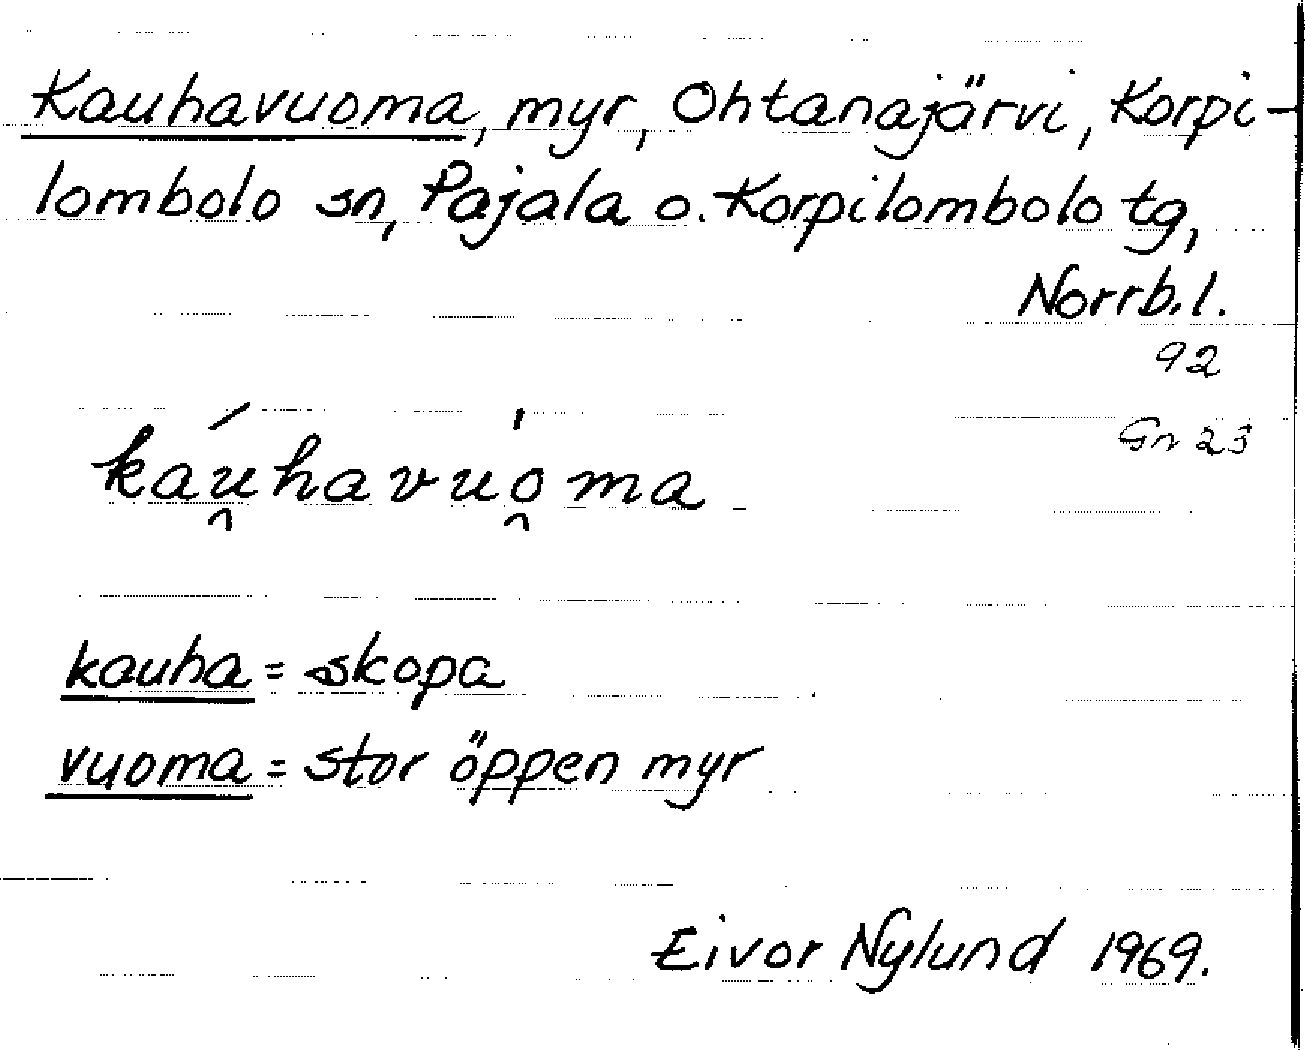 Kauhavuoma, myr, Ohtanajärvi, Korpi-
lombolo sn, Pajala o. Korpilombolo tg,
Norrb. l.
92
Gn 23
káu̯havuo̯̍ma
kauha = skopa
vuoma = stor öppen myr
Eivor Nylund 1969.